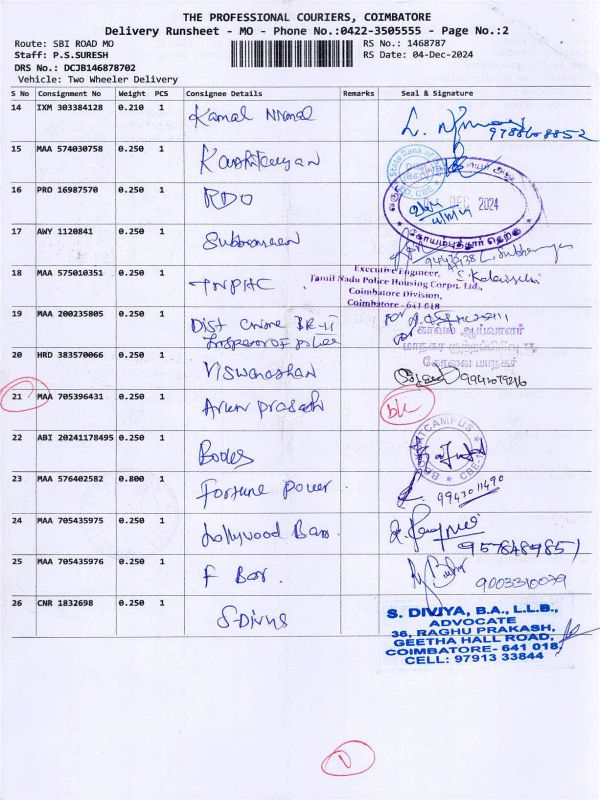 THE PROFESSIONAL COURIERS, COIMBATORE
Delivery Runsheet - MO - Phone No.:0422-3505555 - Page No.:2
Route: SBI ROAD MO RS No.: 1468787
Staff: P.S.SURESH RS Date: 04-Dec-2024
DRS No.: DCJB146878702
Vehicle: Two Wheeler Delivery
S No Consignment No Weight PCS Consignee Details Remarks Seal & Signature
14 IXM 303384128 0.210 1 Kamal Nirmal
9788608852
15 MAA 574030758 0.250 1
State Bank of
16 PRO 16987570 0.250 1 RDO
DEC 2024
கோயம்புத்தூர் தெற்கு
17 AWY 1120841 0.250 1
18 MAA 575010351 0.250 1 TNPHC
Executive Engineer,
Tamil Nadu Police Housing Corpn. Ltd.,
Coimbatore Division,
Coimbatore - 641 018
19 MAA 200235805 0.250 1 Dist Crime BR-II
Inspector of Police
காவல் ஆய்வாளர்
மாநகர குற்றப்பிரிவு
கோவை மாநகர்
20 HRD 383570066 0.250 1 Viswanathan
9941079216
21 MAA 705396431 0.250 1 Arun prasath
bk
22 ABI 20241178495 0.250 1 Bodes
23 MAA 576402582 0.800 1 Fortune Power
9943011490
24 MAA 705435975 0.250 1 Lollywood Bar.
9578489851
25 MAA 705435976 0.250 1 F Bar.
9003310079
26 CNR 1832698 0.250 1 S-Divya
S. DIVIYA, B.A., L.L.B.,
ADVOCATE
36, RAGHU PRAKASH,
GEETHA HALL ROAD,
COIMBATORE- 641 018
CELL: 97913 33844